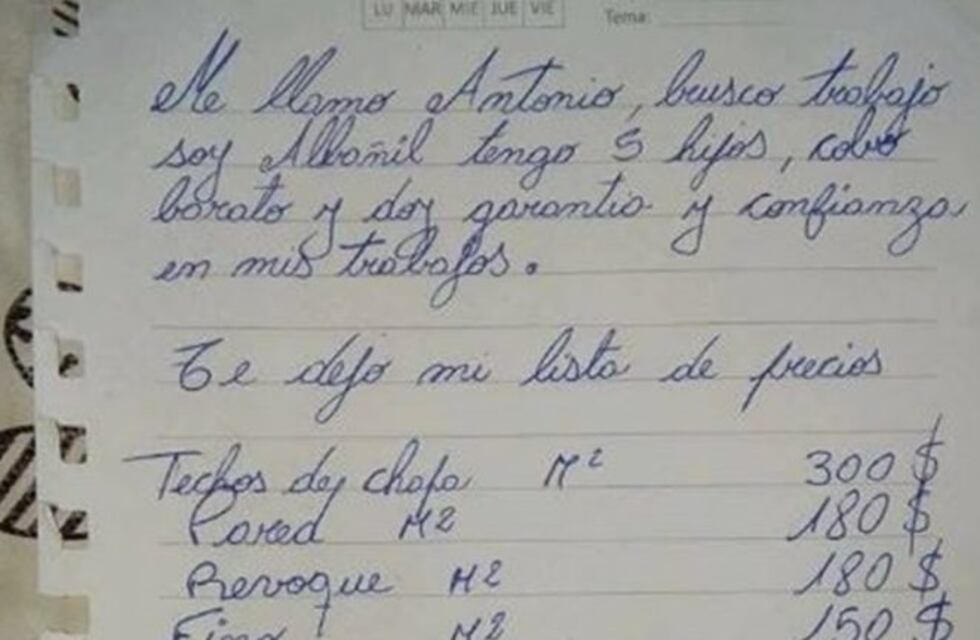 LU MAR MIE JUE VIE
Tema:
Me llamo Antonio, busco trabajo
soy Albañil tengo 5 hijos, cobro
barato y doy garantia y confianza
en mis trabajos.
Te dejo mi lista de precios
Techos de chapa M² 300 $
Pared M2 180 $
Revoque M2 180 $
Fino M2 150 $